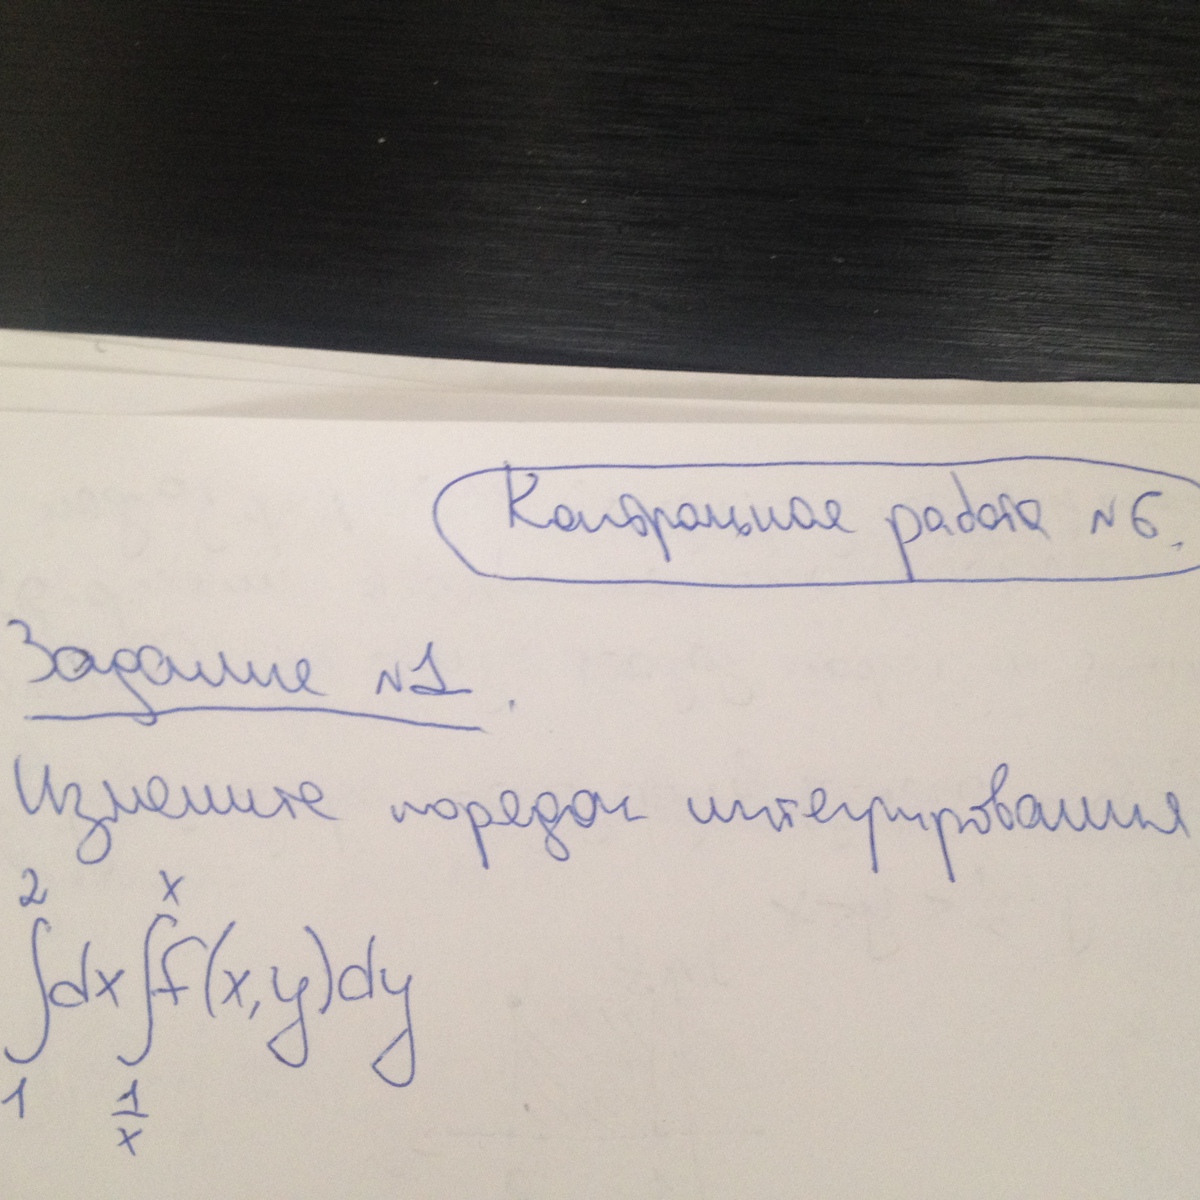 Контрольная работа №6.
Задание №1.
Измените порядок интегрирования
∫₁² dx ∫_{1/x}^{x} f(x,y)dy